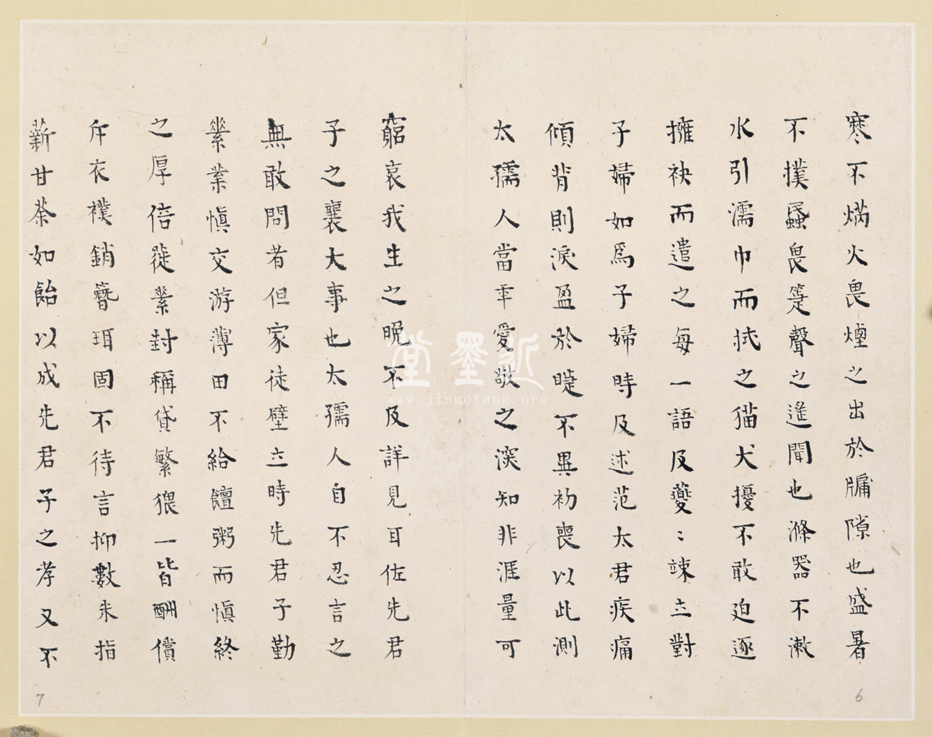 寒不爇火畏煙之出於牖隙也盛暑
不撲蟁畏箑聲之遙聞也滌器不漱
水引濡巾而拭之猫犬擾不敢迫逐
擁袂而遣之每一語及夔〻竦立對
子婦如爲子婦時及述范太君疾痛
傾背則淚盈於睫不異初喪以此測
太孺人當年愛敬之深知非涯量可
窮哀我生之晚不及詳見耳佐先君
子之襄大事也太孺人自不忍言之
無敢問者但家徒壁立時先君子勤
素業慎交游薄田不給饘粥而慎終
之厚倍蓰素封稱貸繁猥一皆酬償
斥衣襆銷簪珥固不待言抑數米指
薪甘荼如飴以成先君子之孝又不
7
6
新墨堂
www.jinmotang.org